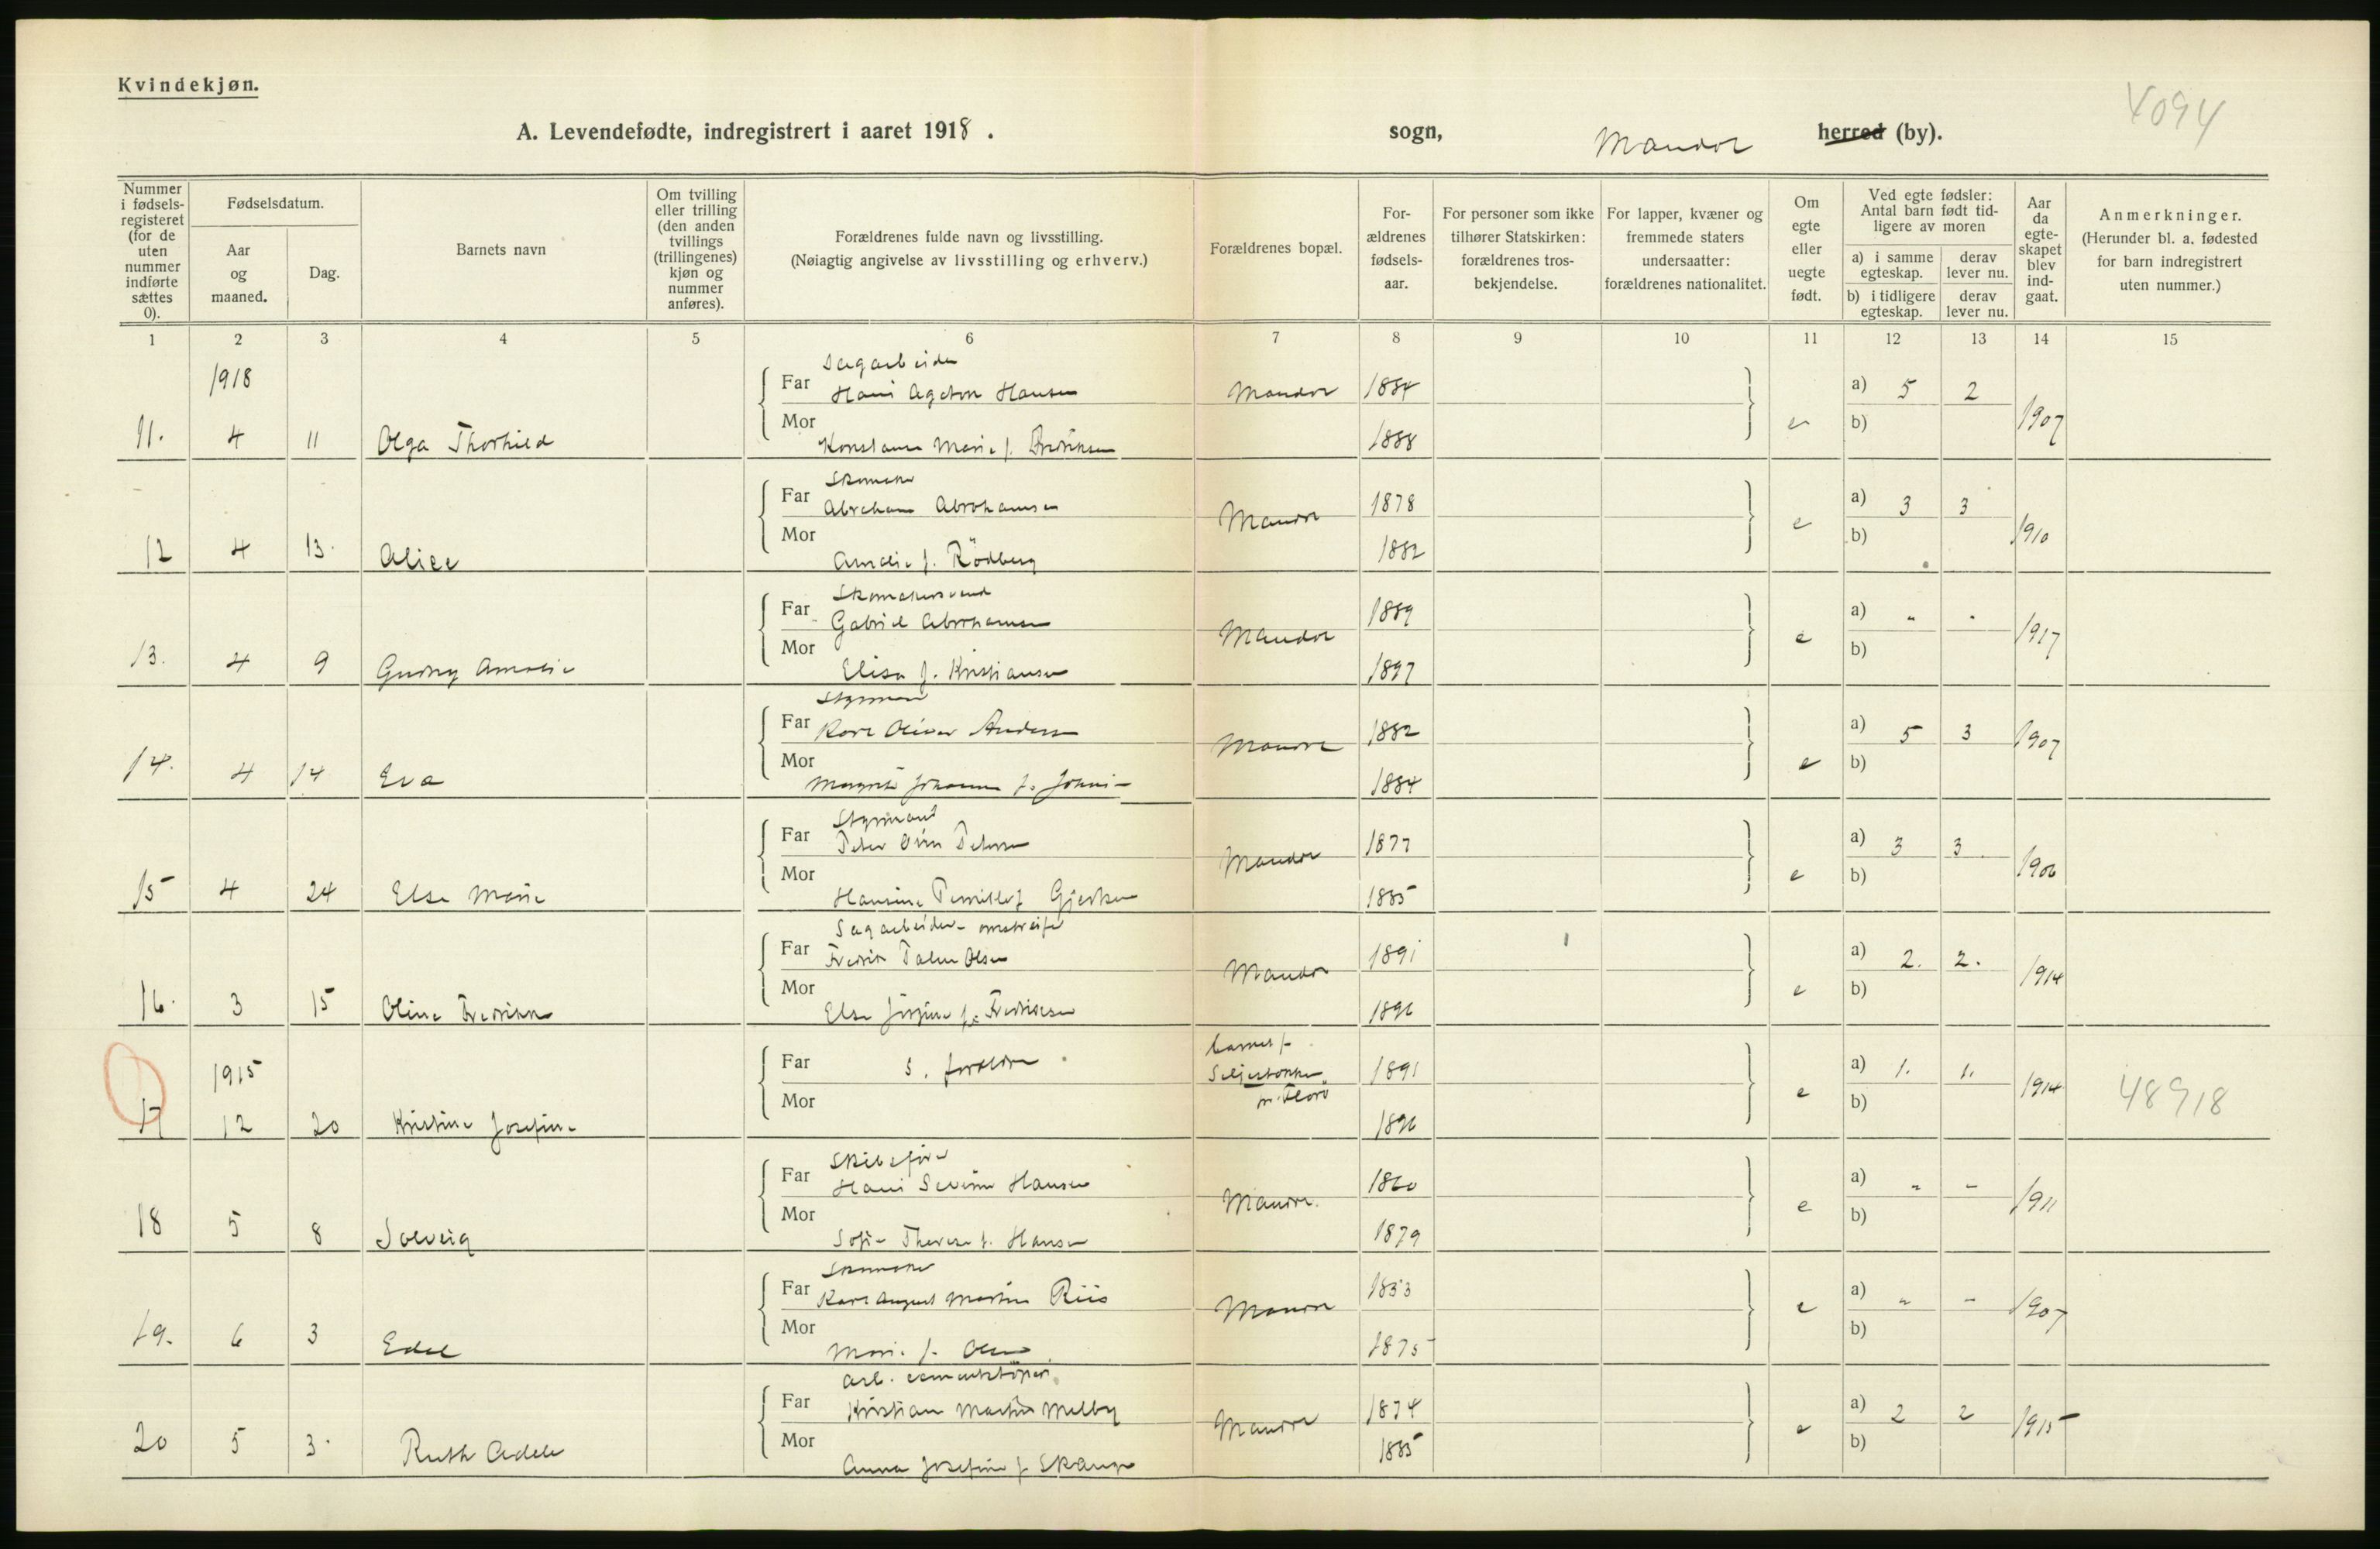 Kvindekjøn.
4094
A. Levendefødte, indregistrert i aaret 1918. sogn, Mandal herred (by).
Nummer i fødsels-registeret (for de uten nummer indførte sættes 0).
Fødselsdatum.
Aar og maaned.
Dag.
Barnets navn
Om tvilling eller trilling (den anden tvillings (trillingenes) kjøn og nummer anføres).
Forældrenes fulde navn og livsstilling.
(Nøiagtig angivelse av livsstilling og erhverv.)
Forældrenes bopæl.
For-ældrenes fødsels-aar.
For personer som ikke tilhører Statskirken: forældrenes tros-bekjendelse.
For lapper, kvæner og fremmede staters undersaatter: forældrenes nationalitet.
Om egte eller uegte født.
Ved egte fødsler: Antal barn født tid-ligere av moren
a) i samme egteskap. derav lever nu.
b) i tidligere egteskap. derav lever nu.
Aar da egte-skapet blev ind-gaat.
Anmerkninger.
(Herunder bl. a. fødested for barn indregistrert uten nummer.)
1 2 3 4 5 6 7 8 9 10 11 12 13 14 15
1918
Sagarbeider
Far Hans Hansen Mandal 1884 a) 5 2
11. 4 11 Olga Thorhild e 1907
Mor Marie f. 1888 b)
Skomaker
Far Abraham Abrahamsen Mandal 1878 a) 3 3
12 4 13. Alice e 1910
Mor Amalie f. Rödberg 1882 b)
Skomakersvend
Far Gabriel Abrahamsen Mandal 1889 a) " "
13. 4 9 Gudny Amalie e 1917
Mor Elisa f. Kristiansen 1897 b)
Styrmand
Far Karl Oliver Andersen Mandal 1882 a) 5 3 1907
14. 4 14 Eva e
Mor f. 1884 b)
Styrmand
Far Peder Petersen Mandal 1877 a) 3 3
15 4 24 Else Marie e 1906
Mor Hansine Pernille f 1885 b)
Sagarbeider - omstreifer
Far Fredrik Olsen Mandal 1891 a) 2. 2.
16. 3 15 Oline Fredrikke e 1914
Mor Else f. Fredriksen 1896 b)
1915
Far s. foreldre 1891 a) 1. 1.
17 12 20 Kristine Josefine e 1914 48918
Mor 1896 b)
Skibsfører
Far Hans Severin Hansen Mandal. 1860 a) " -
18 5 8 Solveig e 1911
Mor Sofie Therese f. Hansen 1879 b)
Skomaker
Far Karl August Martin Riis Mandal a) " -
19. 6 3 Edel e 1907
Mor Marie f. Olsen 1875 b)
Arb.
Far Kristian Martin Melby Mandal 1874 a) 2 2
20 5 3. Ruth Adele e 1915
Mor Anna Josefine f 1885 b)